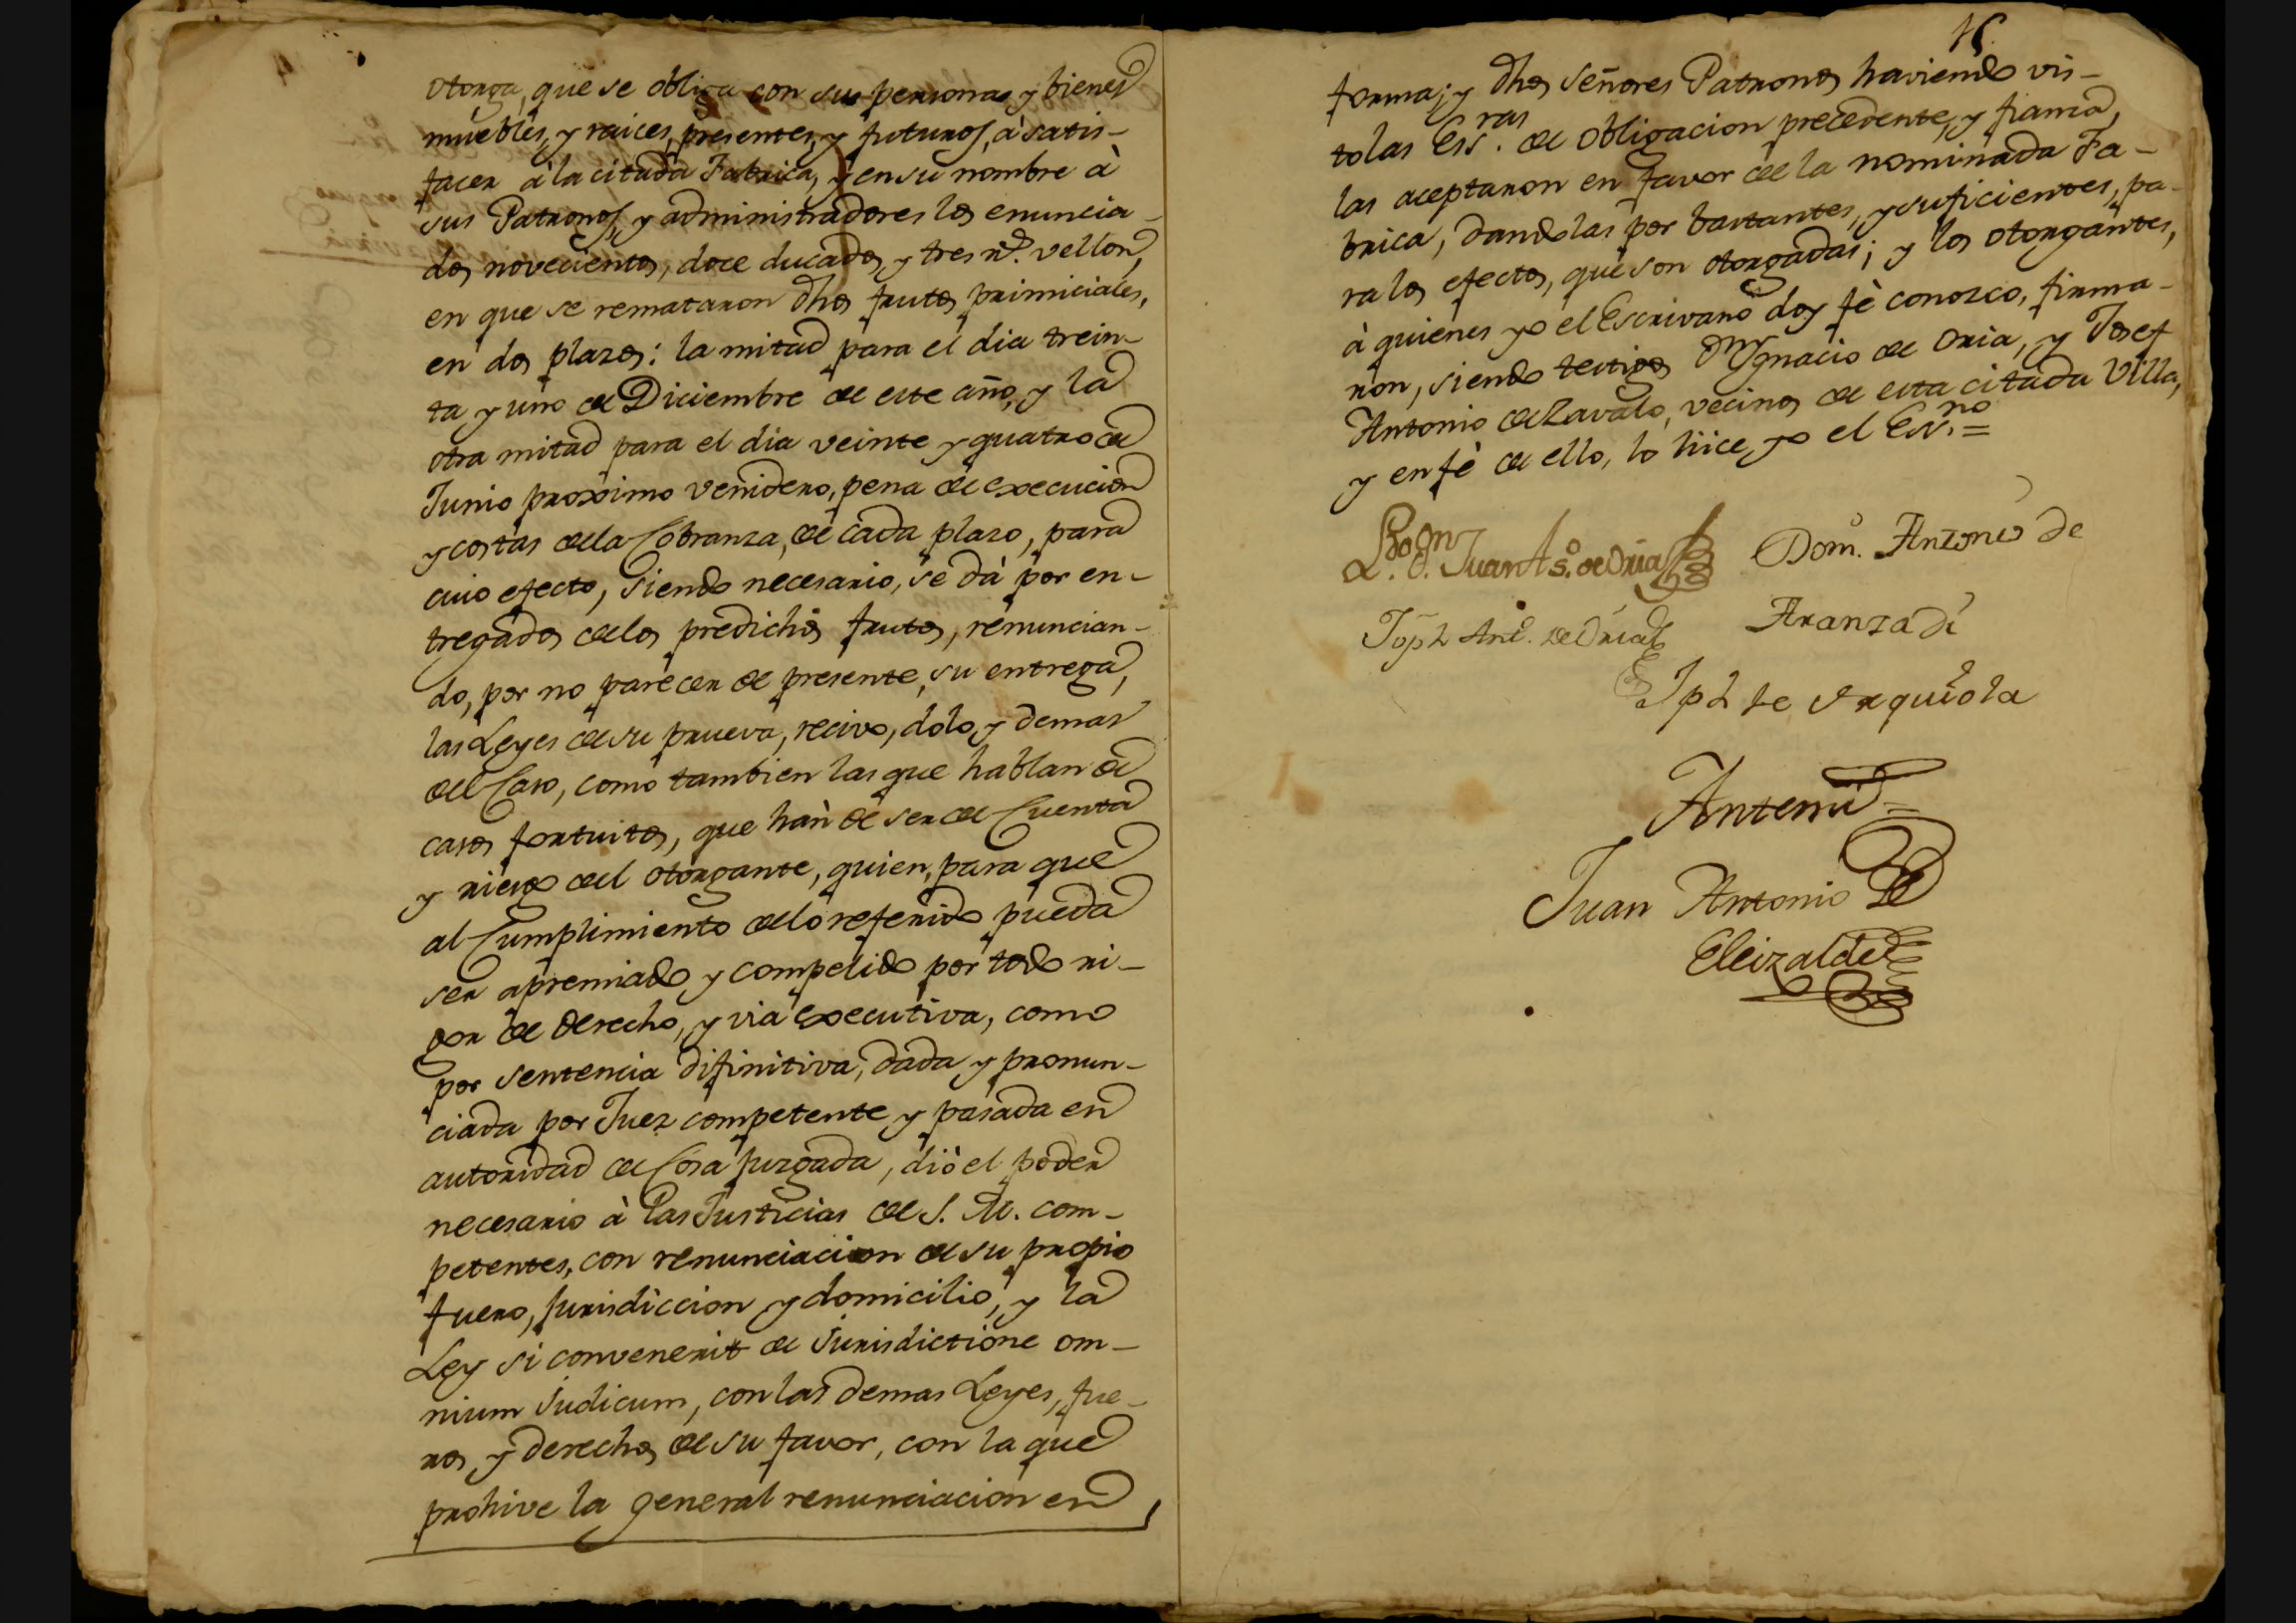 otorga, que se obliga con sus personas y bienes
muebles, y raices, presentes, y futuros, à satis-
facer à la citada Fabrica, y en su nombre à
sus Patronos, y administradores los enuncia-
dos novecientos, doce ducados, y tres rs. vellon,
en que se remataron dhos frutos primiciales,
en dos plazos: la mitad para el dia trein-
ta y uno de Diciembre de este año, y la
otra mitad para el dia veinte y quatro de
Junio proximo venidero, pena de execucion
y costas de la Cobranza, de cada plazo, para
cuio efecto, siendo necesario, se dà por en-
tregado de los predichos frutos, renuncian-
do, por no parecer de presente, su entrega,
las Leyes de su prueva, recivo, dolo, y demas
del Caso, como tambien las que hablan de
casos fortuitos, que hàn de ser de Cuenta
y riesgo del otorgante, quien, para que
al Cumplimiento de lo referido pueda
ser apremiado, y compelido por todo ri-
gor de derecho, y via executiva, como
por sentencia difinitiva, dada y pronun-
ciada por Juez competente y pasada en
autoridad de Cosa juzgada, diò el poder
necesario à las Justicias de S. M. com-
petentes, con renunciacion de su propio
fuero, jurisdiccion y domicilio, y la
Ley si convenerit de Jurisdictione om-
nium Judicum, con las demas Leyes, fue-
ros, y derechos de su favor, con la que
prohive la general renunciacion en
forma; y dhos señores Patronos haviendo vis-
to las Ess.ras de obligacion precedente, y fianza,
las aceptaron en favor de la nominada Fa-
brica, dandolas por bastantes, y suficientes, pa-
ra los efectos, que son otorgadas; y los otorgantes,
à quienes yo el Escrivano doy fè conozco, firma-
ron, siendo testigos Dn Ygnacio de Oria, y Josef
Antonio de Zavalo, vecinos de esta citada Villa,
y en fè de ello, lo hice, yo el Es.no =
L.do Dn Juan Ant.o de Oria
Dom.o Antonio de
Aranzadi
Joph Ant.o de Oria
Jph de Urquiola
Antemi =
Juan Antonio de
Eleizalde